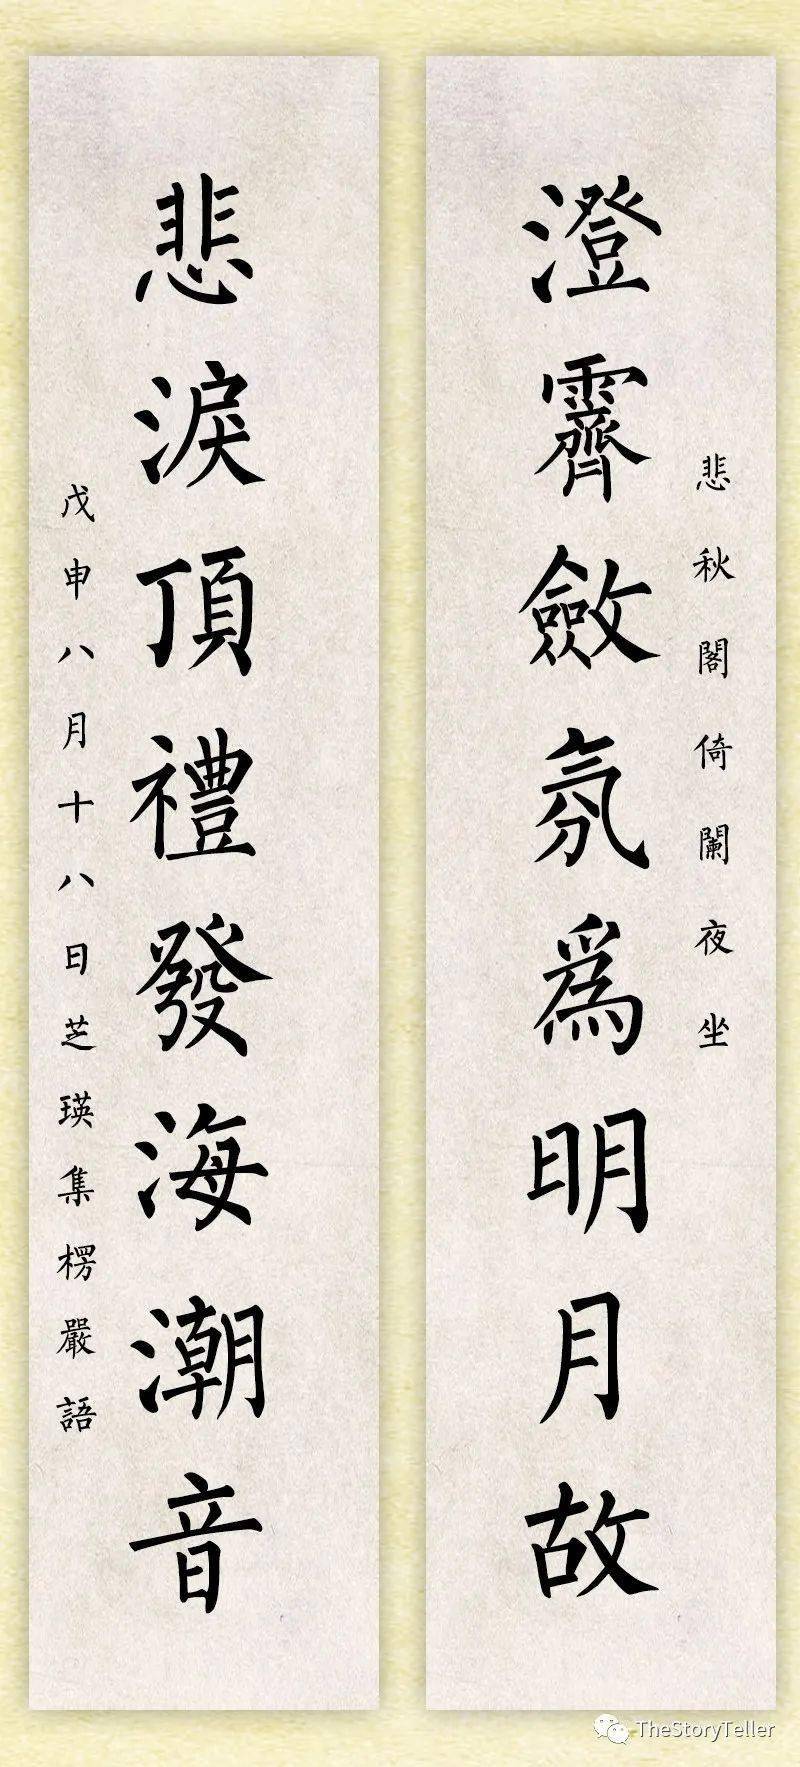 悲秋閣倚闌夜坐
澄霽斂氛爲明月故
悲淚頂禮發海潮音
戊申八月十八日芝瑛集楞嚴語
TheStoryTeller